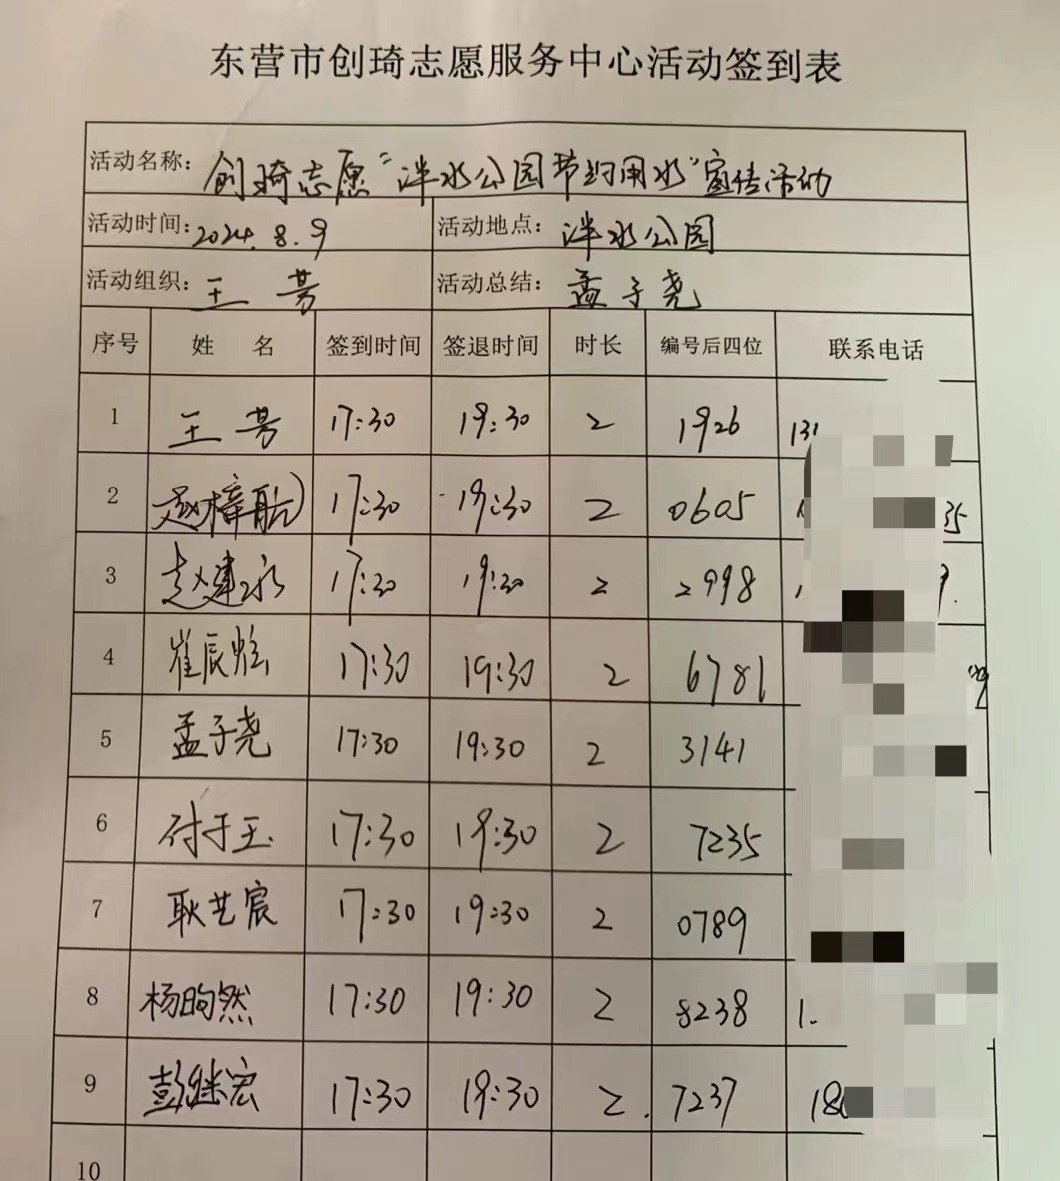 东营市创琦志愿服务中心活动签到表
活动名称: 创琦志愿"泮水公园节约用水"宣传活动
活动时间: 2024.8.9 活动地点: 泮水公园
活动组织: 王芳 活动总结: 孟子尧
序号 姓名 签到时间 签退时间 时长 编号后四位 联系电话
1 王芳 17:30 19:30 2 1926 131
2 赵樟航 17:30 19:30 2 0605 35
3 赵建永 17:30 19:30 2 2998 9.
4 崔辰炫 17:30 19:30 2 6781
5 孟子尧 17:30 19:30 2 3141
6 付于玉 17:30 19:30 2 7235
7 耿艺宸 17:30 19:30 2 0789
8 杨昫然 17:30 19:30 2 8238 1.
9 彭继宏 17:30 19:30 2. 7237 18
10